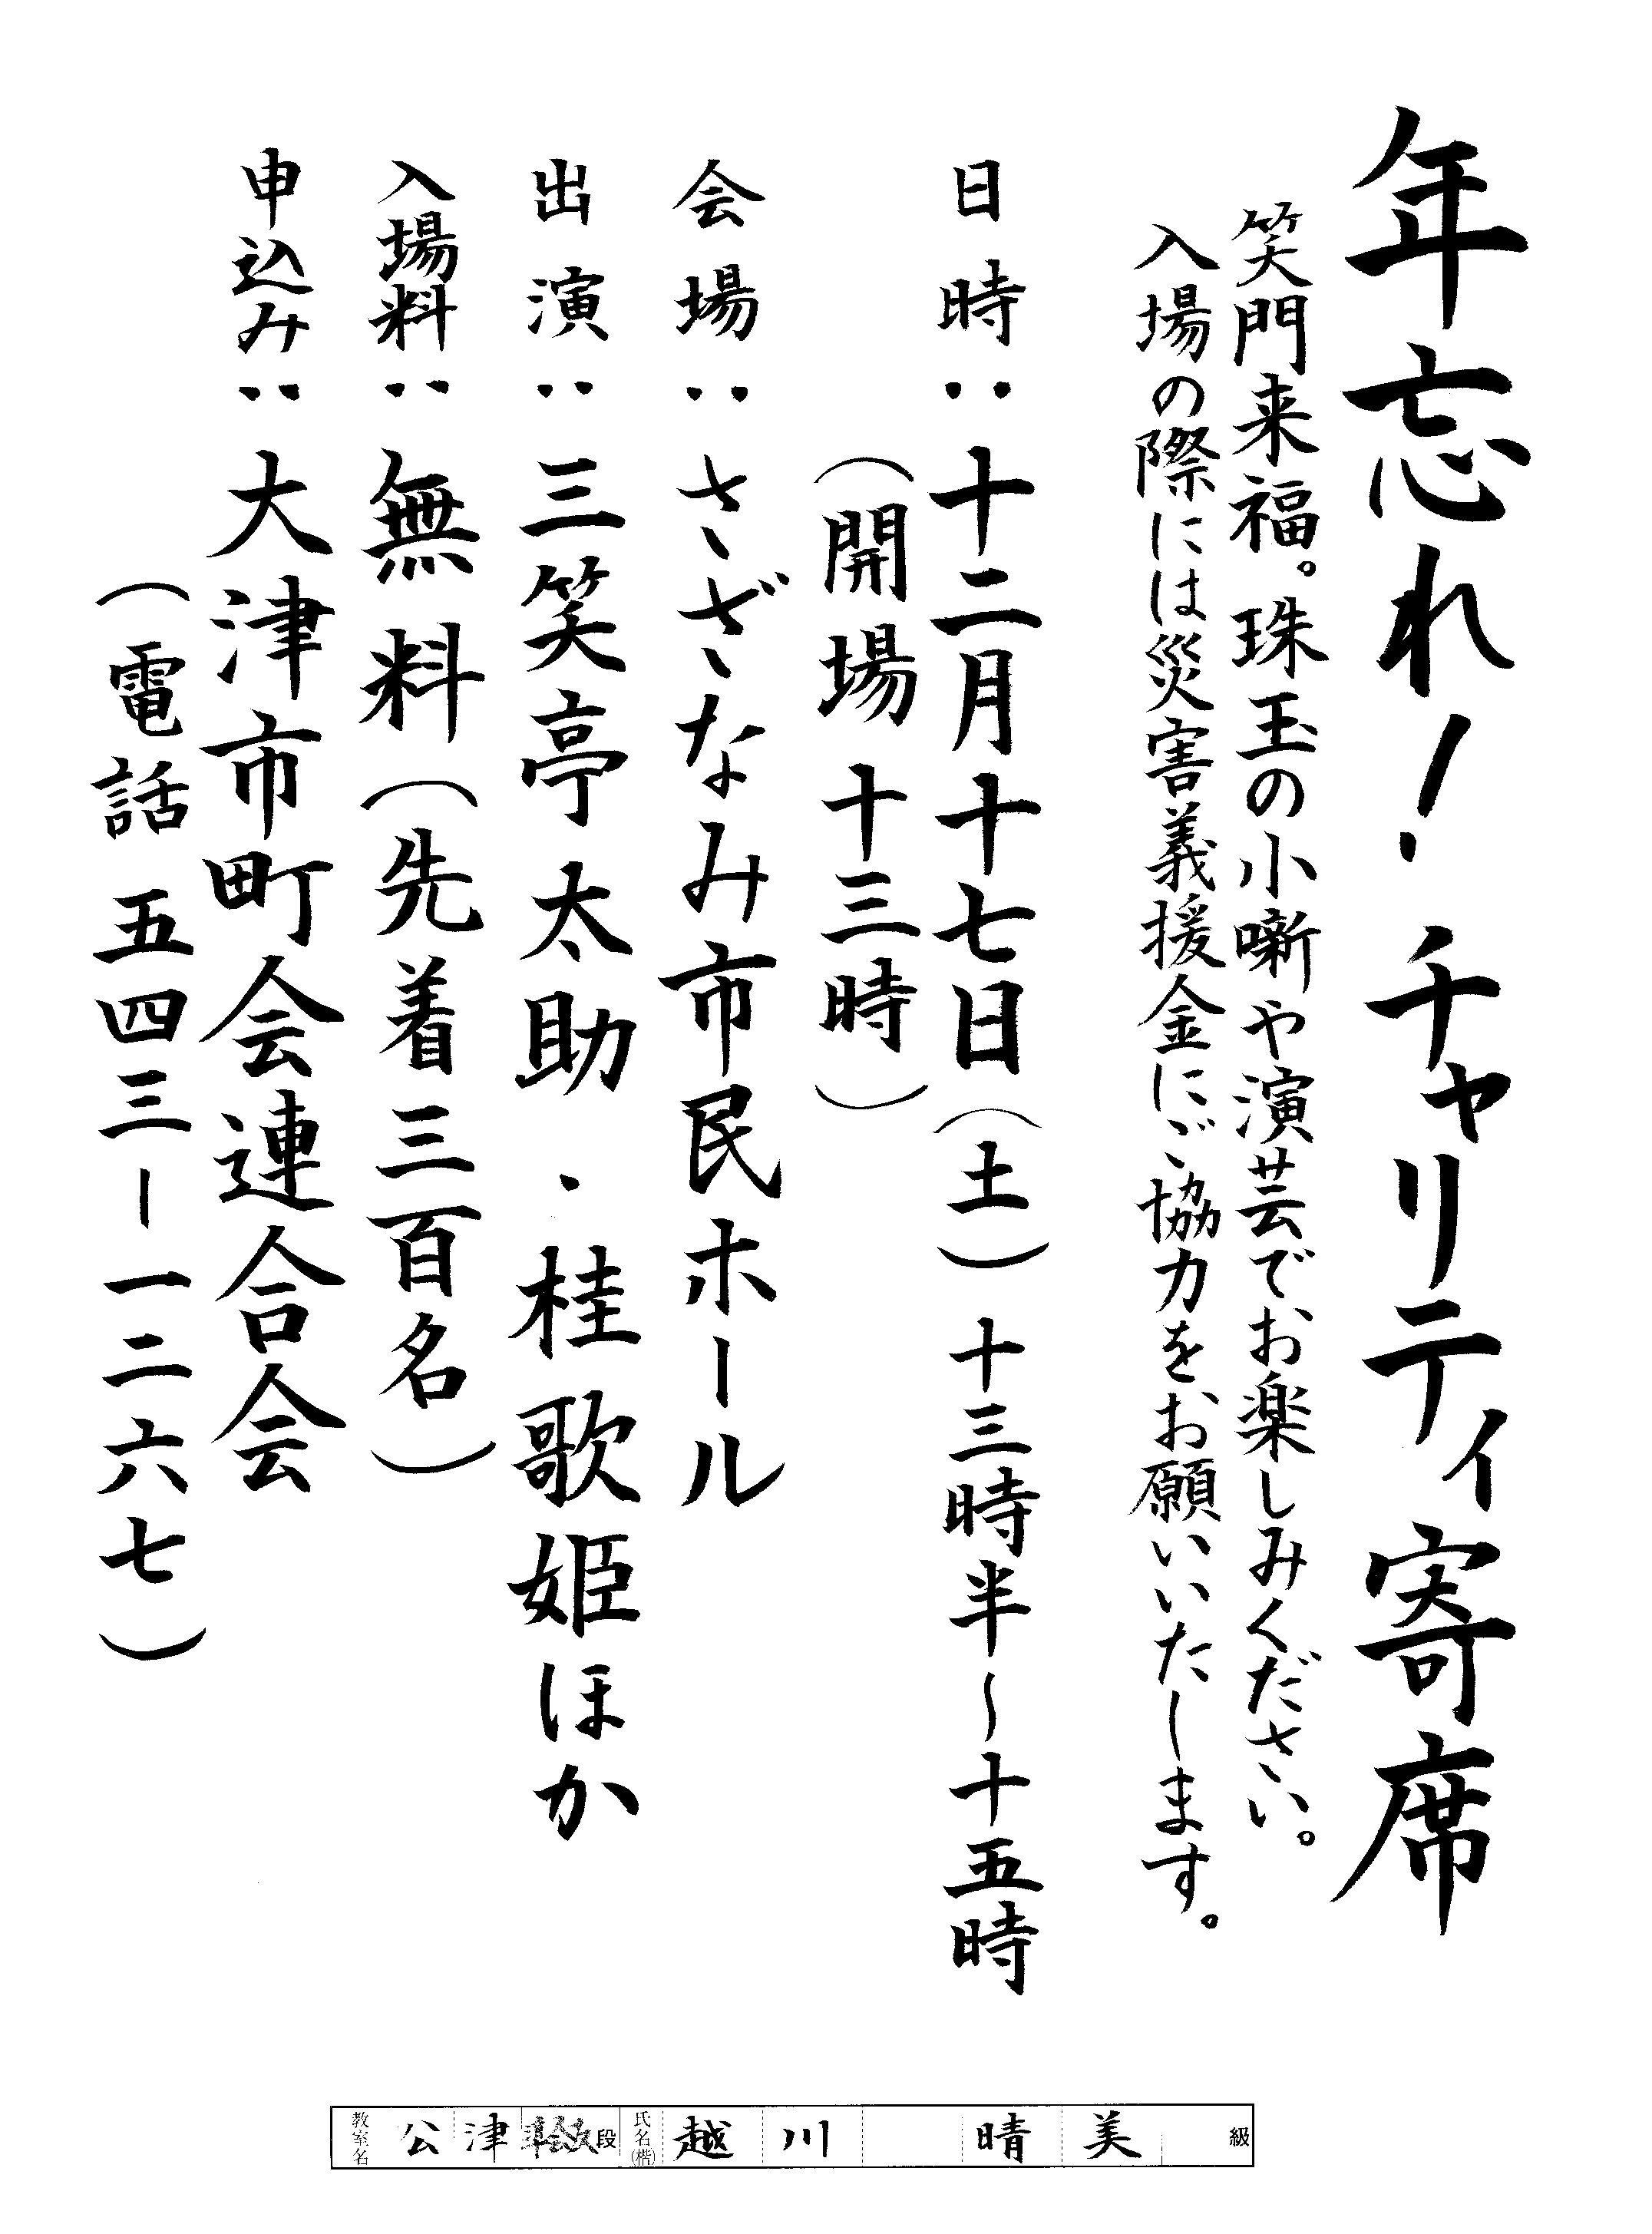 年忘れ！チャリティ寄席
笑門来福。珠玉の小噺や演芸でお楽しみください。
入場の際には災害義援金にご協力をお願いいたします。
日時：十二月十七日（土）十三時半〜十五時
（開場 十三時）
会場：さざなみ市民ホール
出演：三笑亭太助・桂歌姫ほか
入場料：無料（先着三百名）
申込み：大津市町会連合会
（電話 五四三ー一二六七）
教室名 公津 段 氏名(楷) 越川 晴美 級